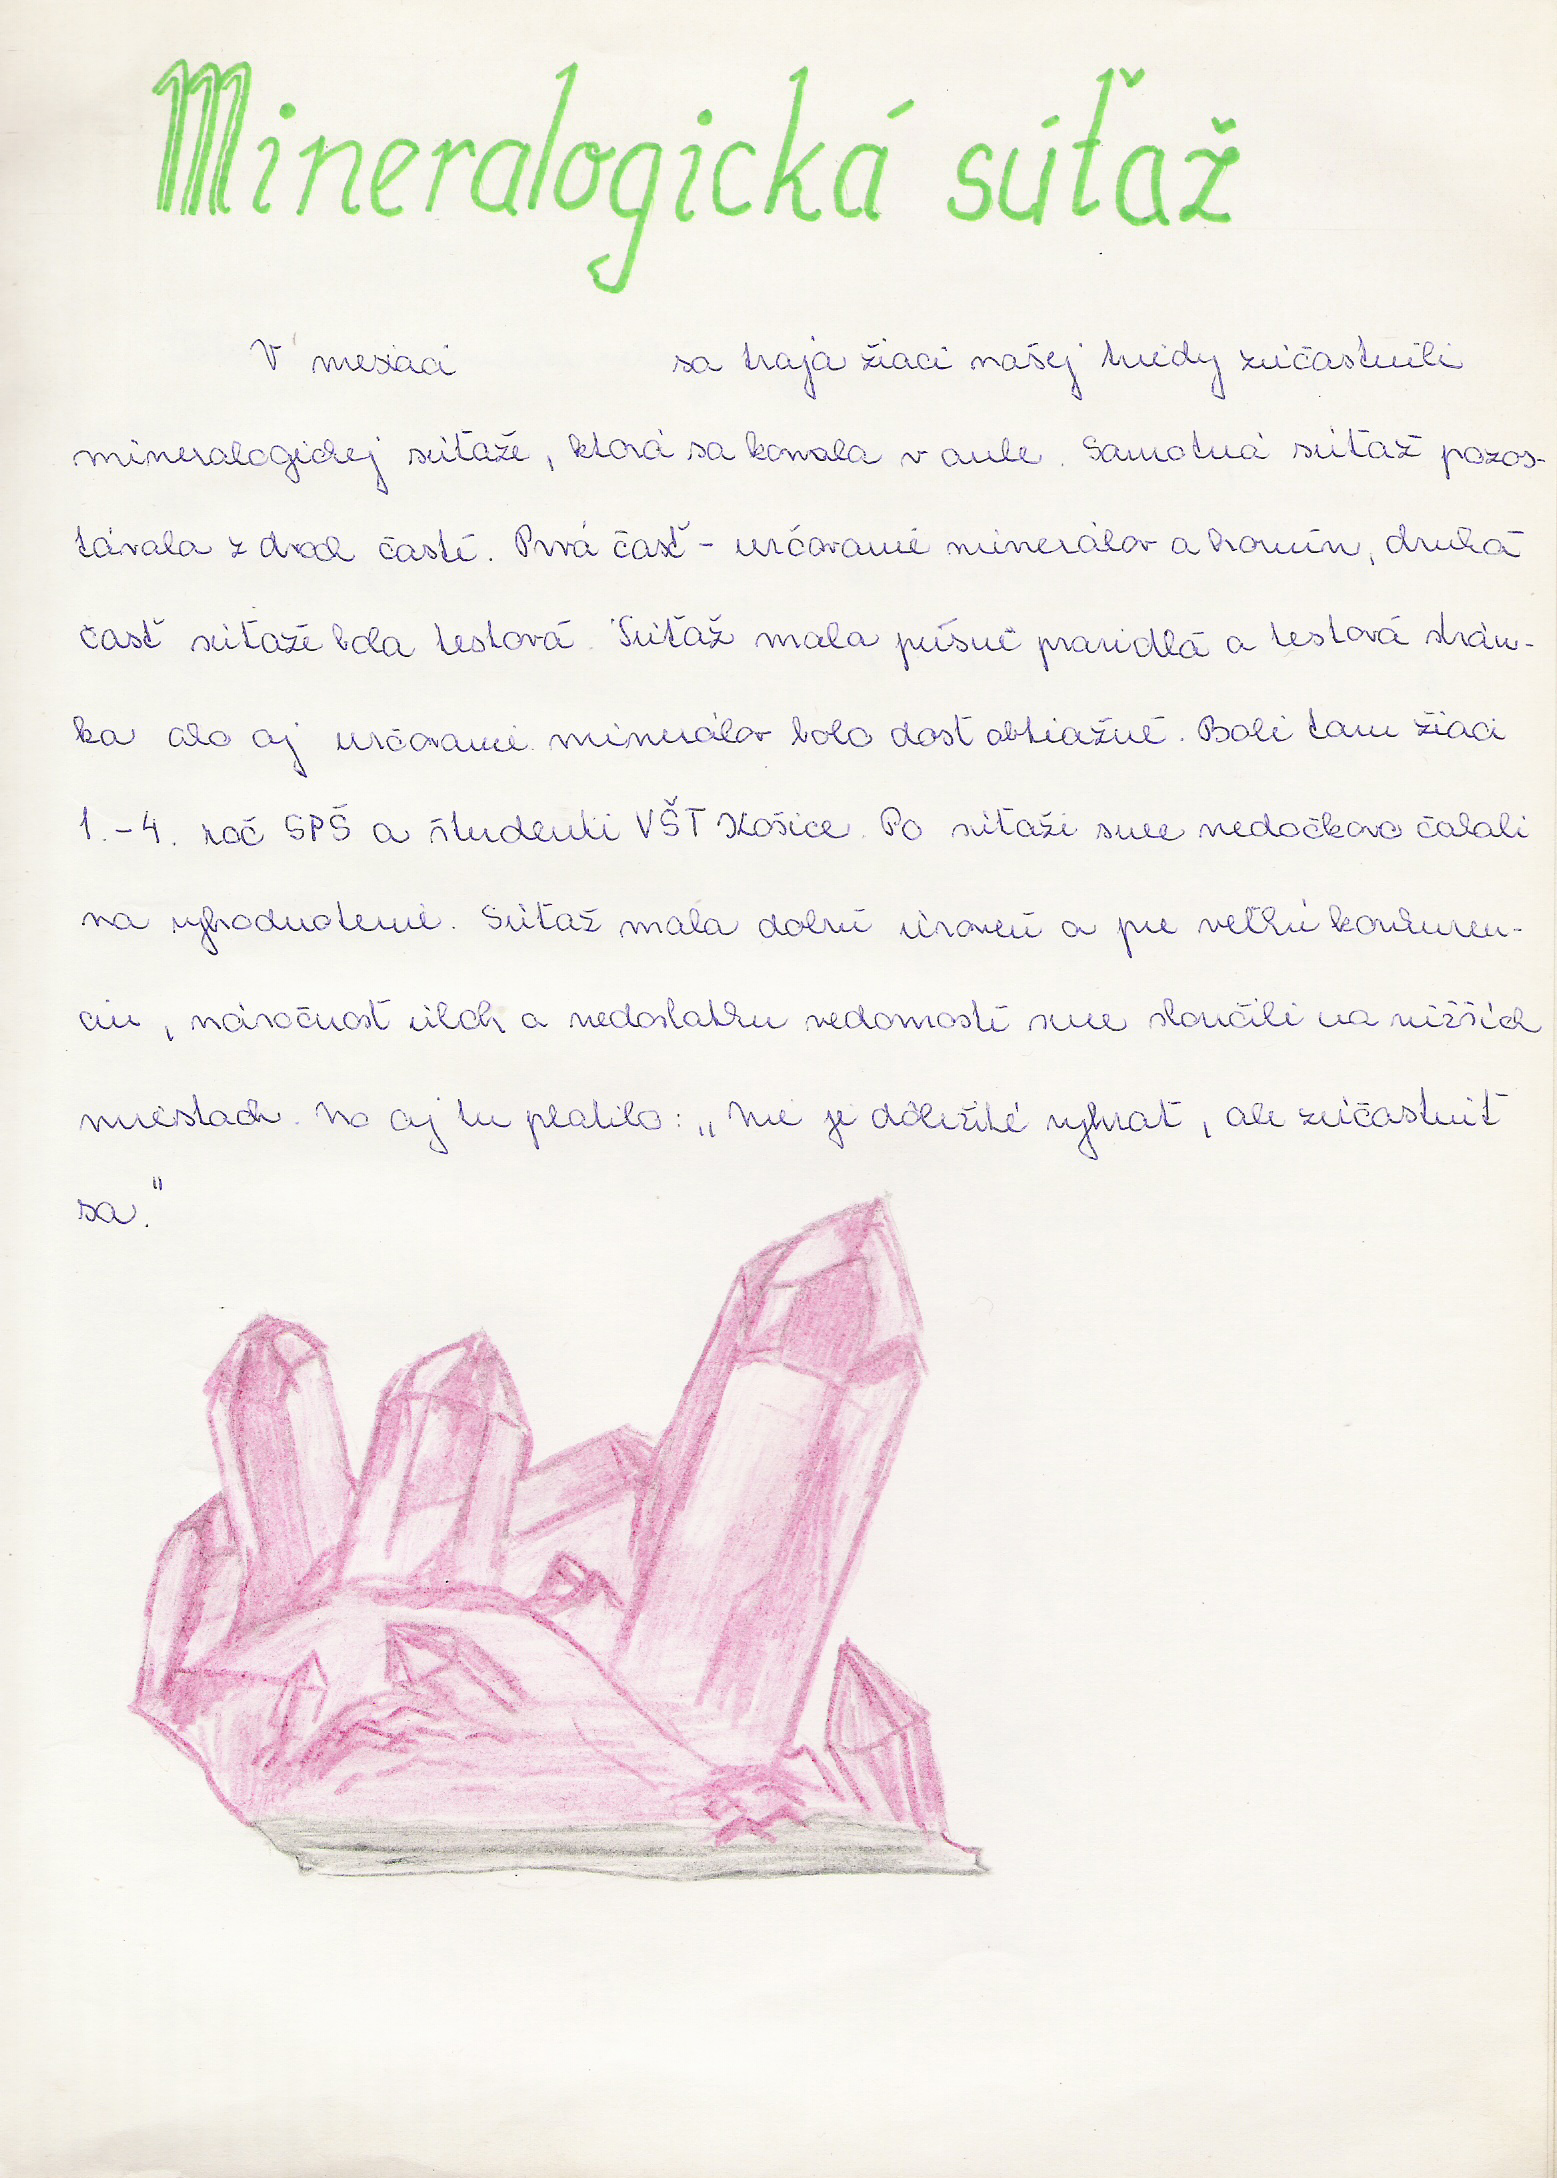 Mineralogická súťaž
V mesiaci sa traja žiaci našej triedy zúčastnili
mineralogickej súťaže, ktorá sa konala v aule. Samotná súťaž pozos-
távala z dvoch častí. Prvá časť - určovanie minerálov a hornín, druhá
časť súťaže bola testová. Súťaž mala prísne pravidlá a testová strán-
ka ako aj určovanie minerálov bolo dosť obtiažné. Boli tam žiaci
1.-4. roč SPŠ a študenti VŠT Košice. Po súťaži sme nedočkavo čakali
na vyhodnotenie. Súťaž mala dobrú úroveň a pre veľkú konkuren-
ciu, náročnosť úloh a nedostatku vedomostí sme skončili na nižších
miestach. No aj tu platilo: „Nie je dôležité vyhrať, ale zúčastniť
sa."